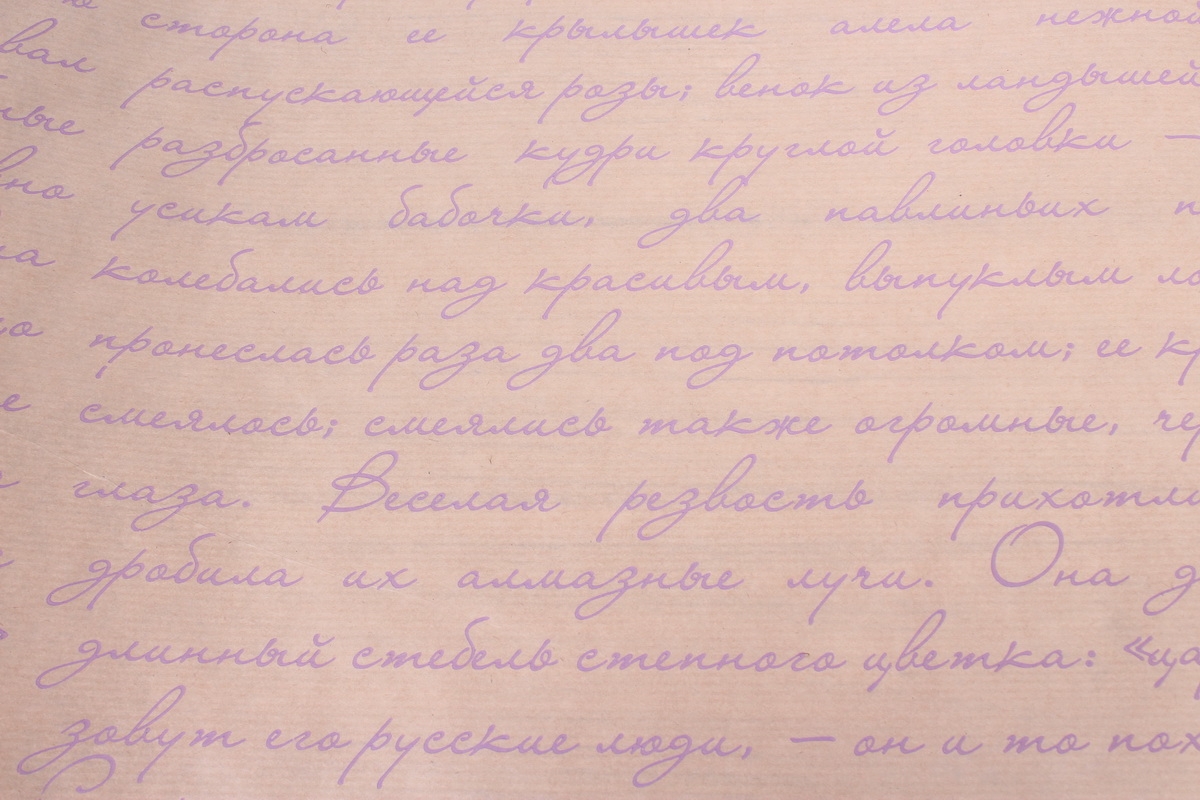 сторона ее крылышек алела нежной
вал распускающейся розы; венок из ландышей
ные разбросанные кудри круглой головки —
вно усикам бабочки, два павлиньих п
на колебались над красивым, выпуклым ло
ло пронеслась раза два под потолком; ее кр
е смеялось; смеялись также огромные, чер
глаза. Веселая резвость прихотли
дробила их алмазные лучи. Она д
длинный стебель степного цветка: «ца
зовут его русские люди, — он и то пох